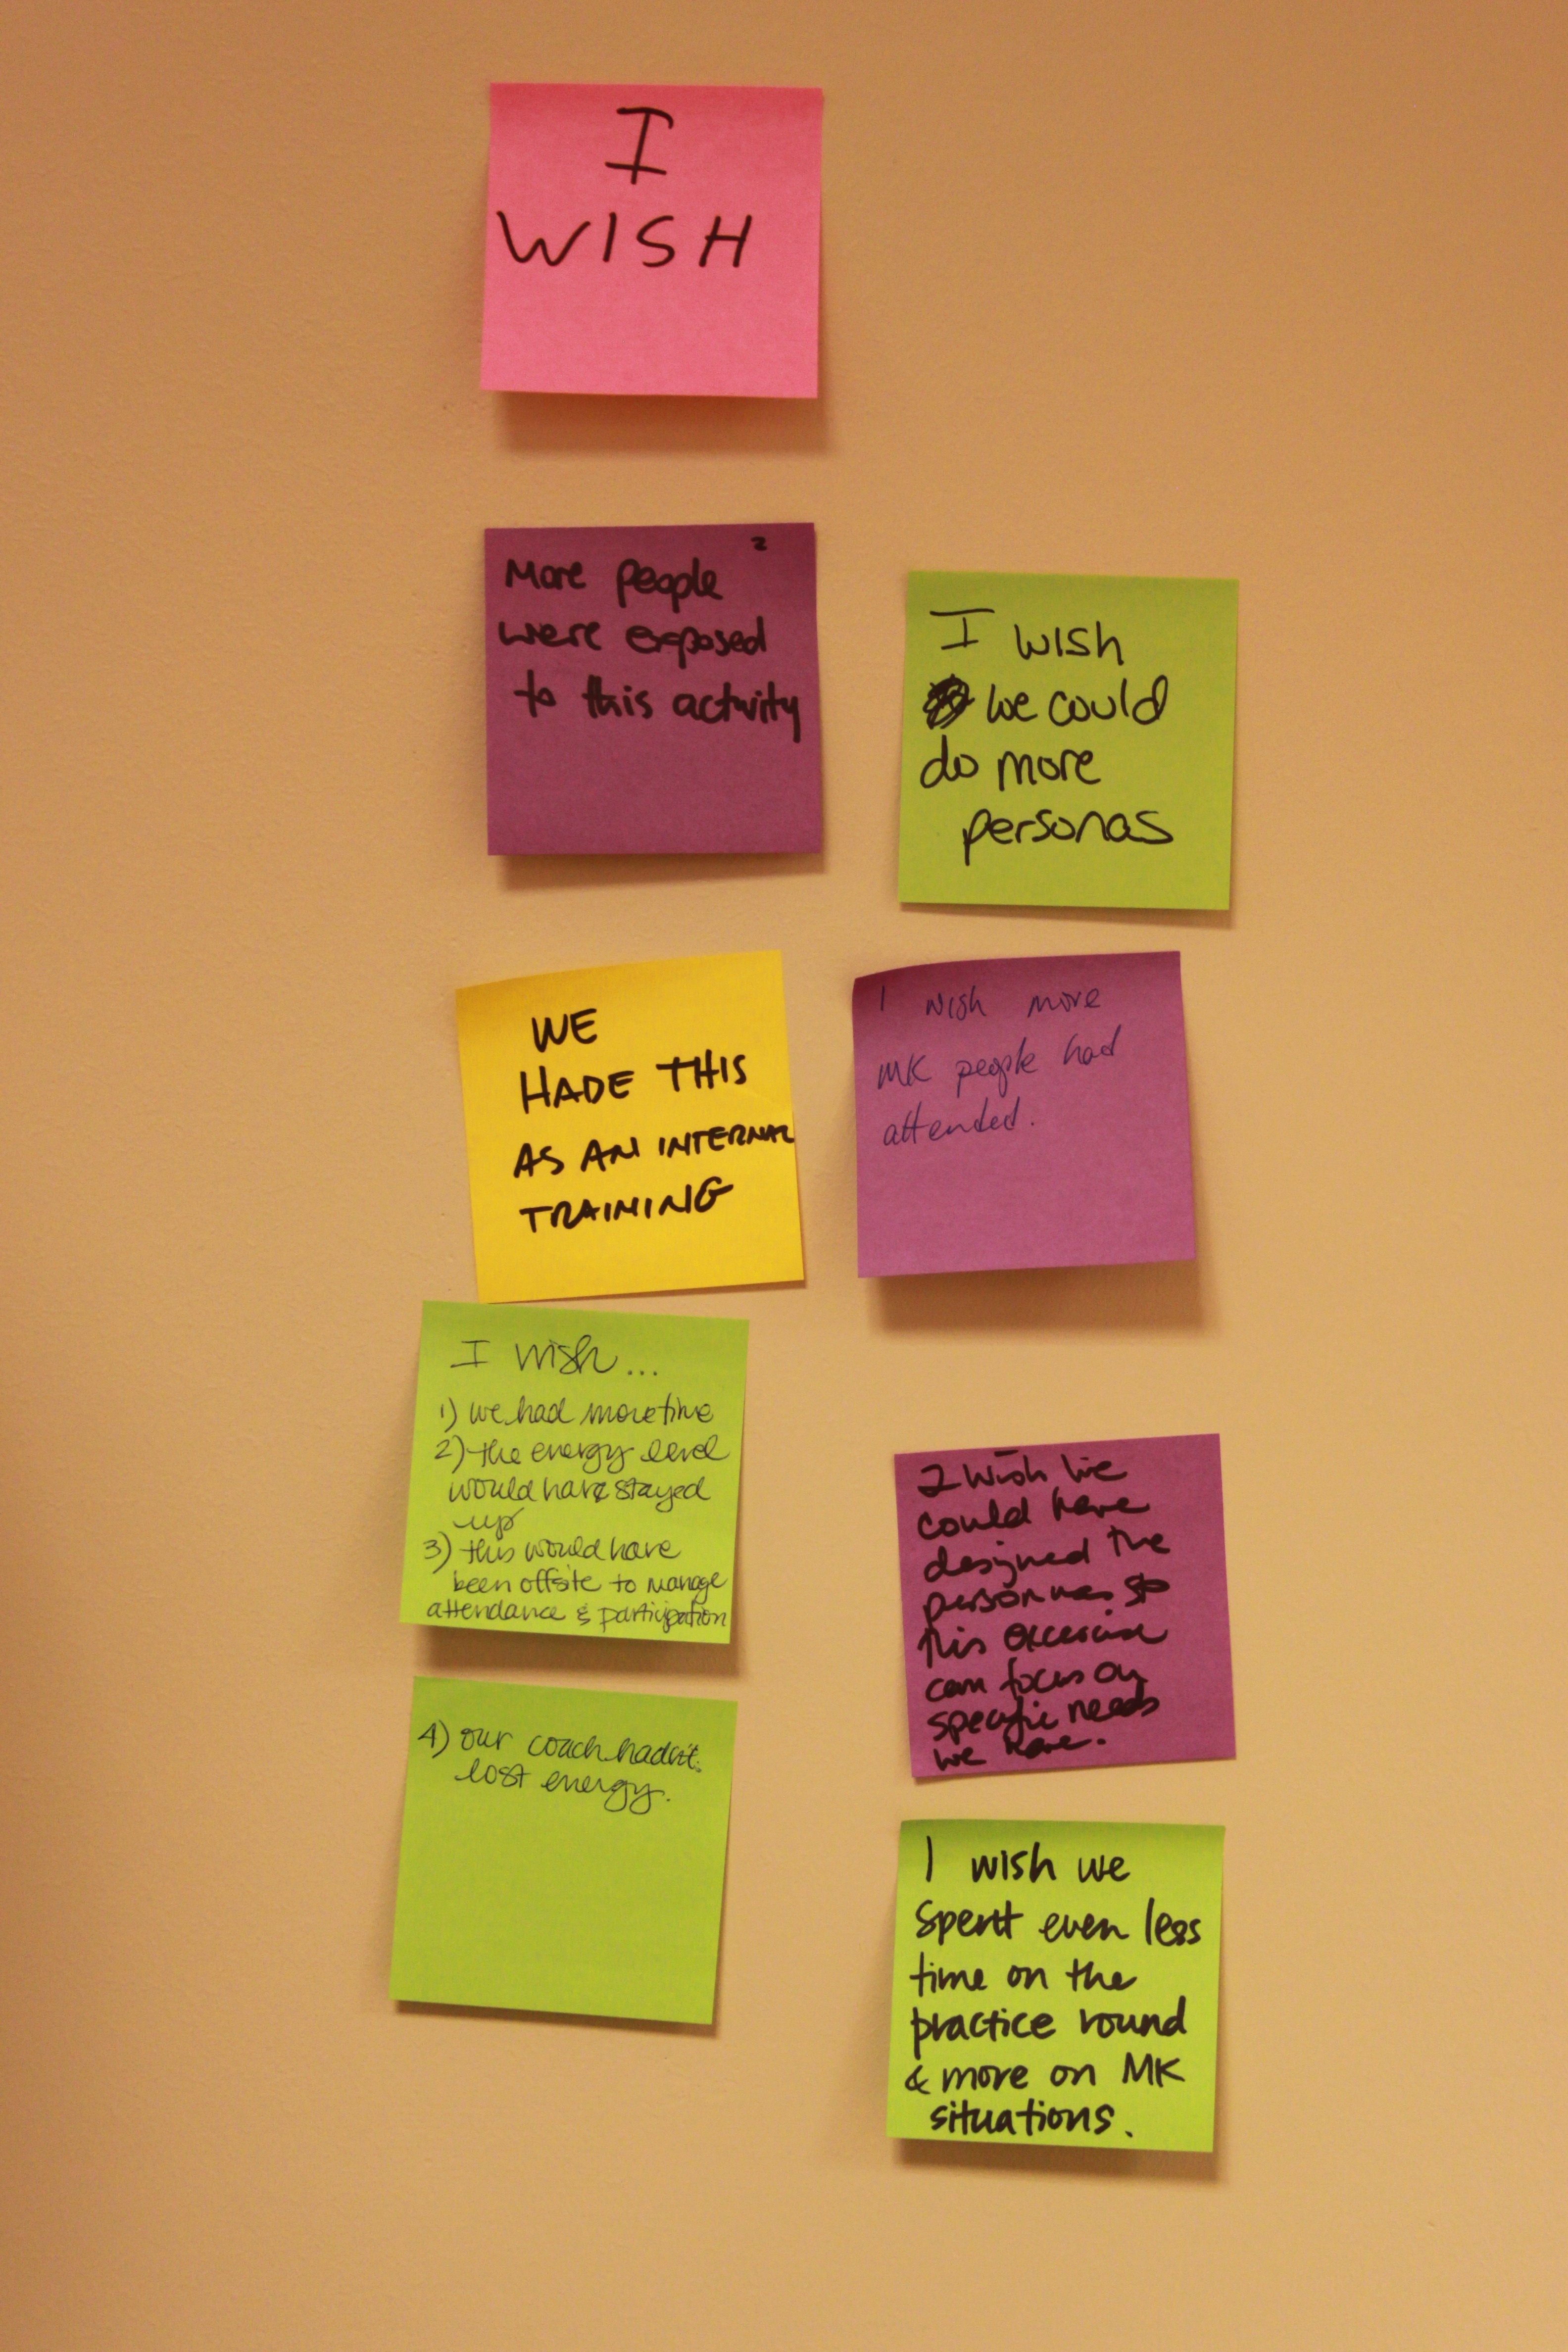 I
WISH
2
More people
were exposed
to this activity
I wish
we could
do more
personas
WE
HADE THIS
AS AN INTERNAL
TRAINING
I wish more
MK people had
attended.
I wish...
1) we had more time
2) the energy level
would have stayed
up
3) this would have
been offsite to manage
attendance & participation
4) our coach hadn't
lost energy.
I wish we
could have
designed the
personnas so
this excercise
can focus on
specific needs
we have.
I wish we
spent even less
time on the
practice round
& more on MK
situations.